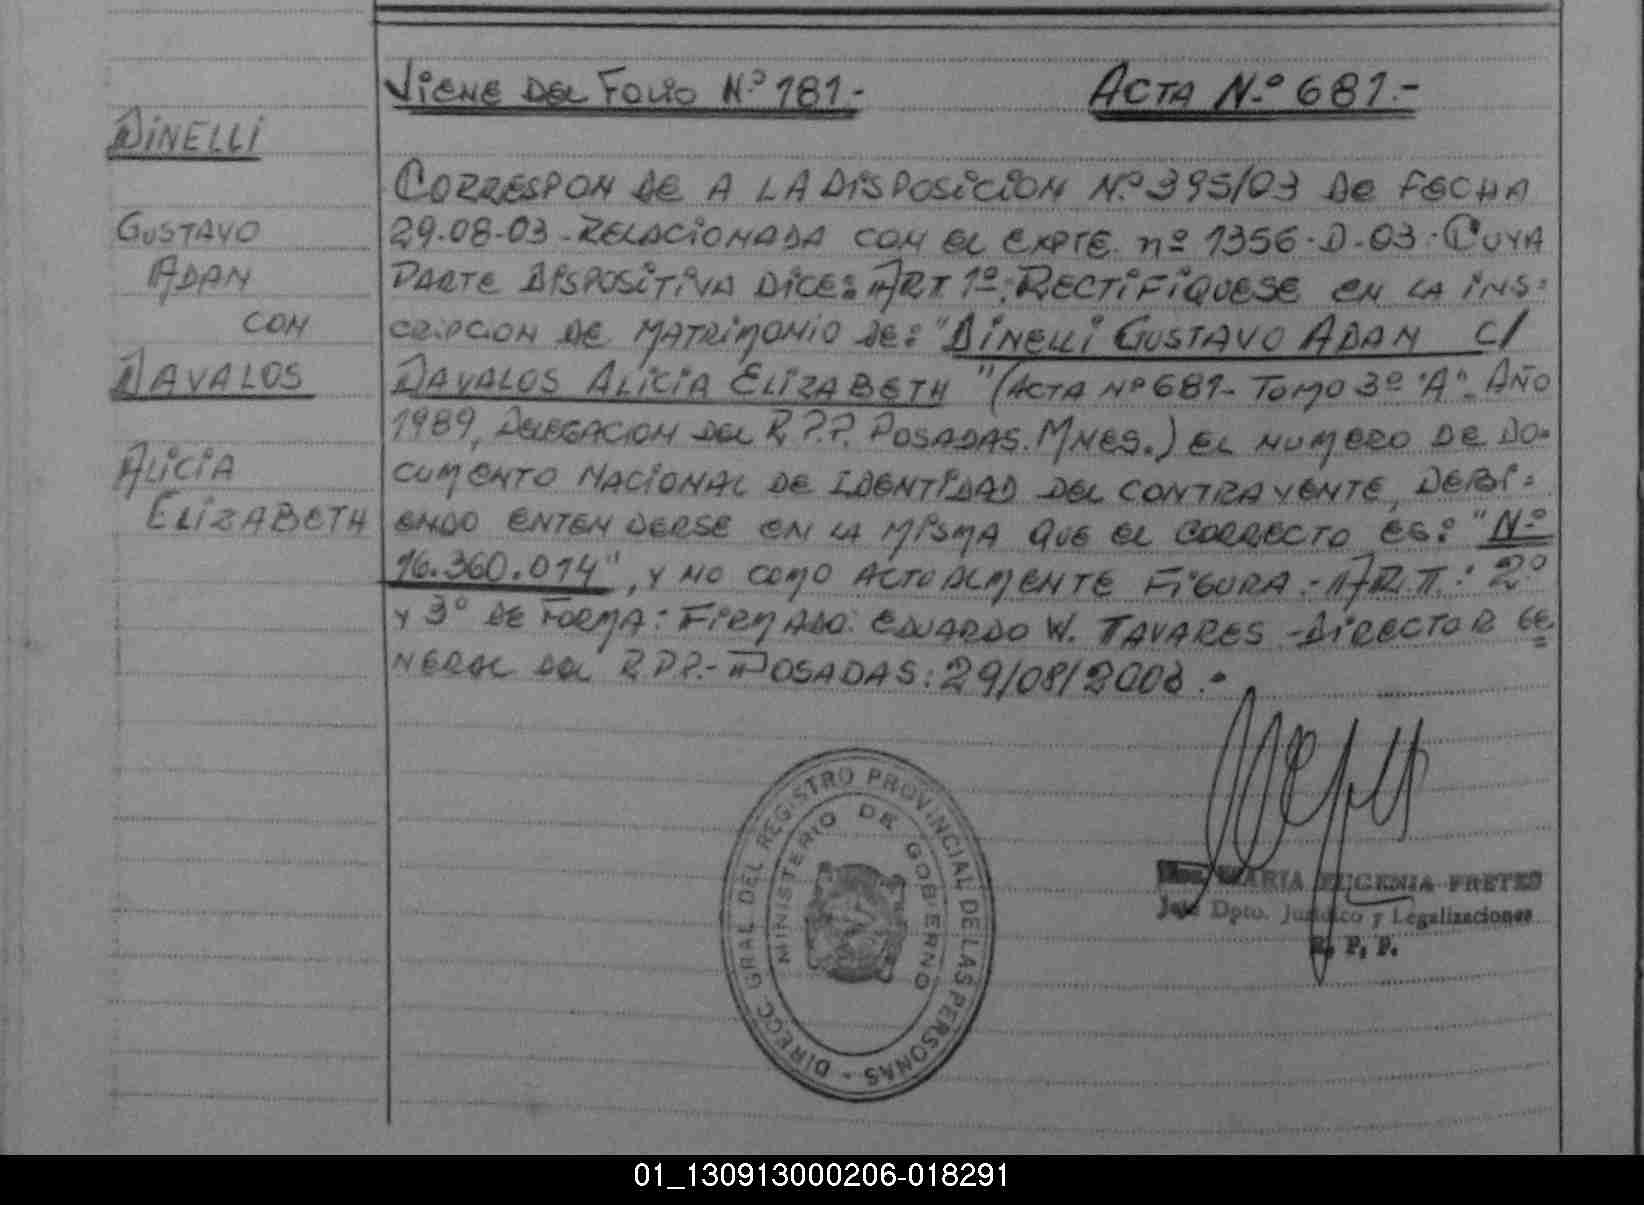 VIENE DEL FOLIO N.º 181.- ACTA N.º 681.-
DINELLI
GUSTAVO
ADAN
CON
DAVALOS
ALICIA
ELIZABETH
CORRESPONDE A LA DISPOSICION N.º 395/03 DE FECHA
29-08-03 - RELACIONADA CON EL EXPTE. nº 1356-D-03. CUYA
PARTE DISPOSITIVA DICE: ART 1º: RECTIFIQUESE EN LA INS-
CRIPCION DE MATRIMONIO DE: "DINELLI GUSTAVO ADAN C/
DAVALOS ALICIA ELIZABETH" (ACTA Nº 681- TOMO 3º "A"- AÑO
1989, DELEGACION DEL R.P.P. POSADAS. MNES.) EL NUMERO DE DO-
CUMENTO NACIONAL DE IDENTIDAD DEL CONTRAYENTE, DEBI-
ENDO ENTENDERSE EN LA MISMA QUE EL CORRECTO ES: "N.º
16.360.014", Y NO COMO ACTUALMENTE FIGURA.- ART.: 2º
Y 3º DE FORMA: FIRMADO: EDUARDO W. TAVARES - DIRECTOR GE
NERAL DEL R.P.P.- POSADAS: 29/08/2003.-
DIRECC. GRAL. DEL REGISTRO PROVINCIAL DE LAS PERSONAS -
MINISTERIO DE GOBIERNO
MARIA EUGENIA FRETES
Jefe Dpto. Jurídico y Legalizaciones
R. P. P.
01_130913000206-018291